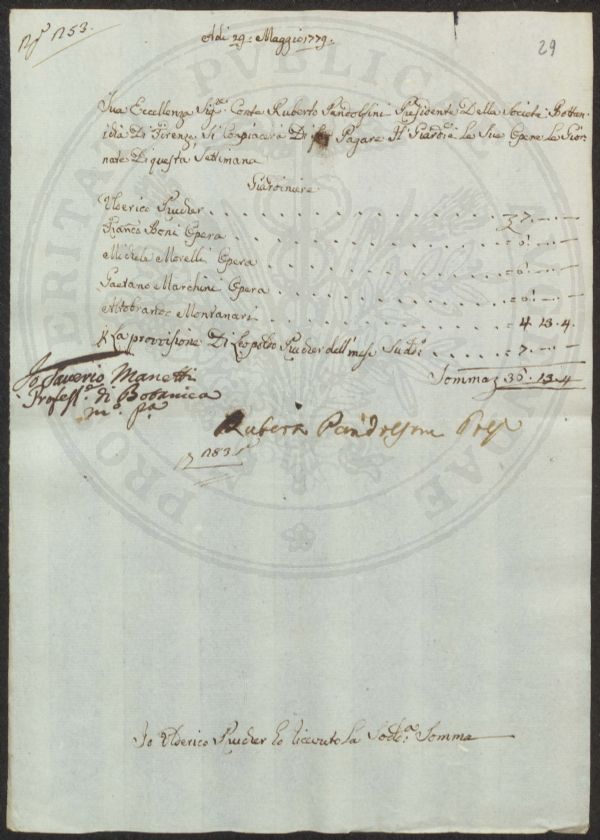 N.º 1253.
Adi 29: Maggio 1779.
29
Sua Eccellenza Sig:e Conte Ruberto Pandolfini Presidente Della Società Bottan-
Di Firenze Si Conpiacerà Di far Pagare Il Giard:e e La Sua Opere Le Gior-
nate Di questa Settimana
Giardiniere
Ulderico Prucker
Franco Boni Opera
Michele Morelli Opera
Gaetano Marchini Opera
Montanari 4. 13. 4
La provvisione Di Leopoldo Prucker dell mese Sud:o 7.
Somma 36. 13. 4
Io Saverio Manetti
Profess.e di Botanica
m.o p.a
Ruberto Pandolfini Pres
PRO VERITATE PUBLICAE
Io Ulderico Prucker ho ricevuto La Sod:a Somma